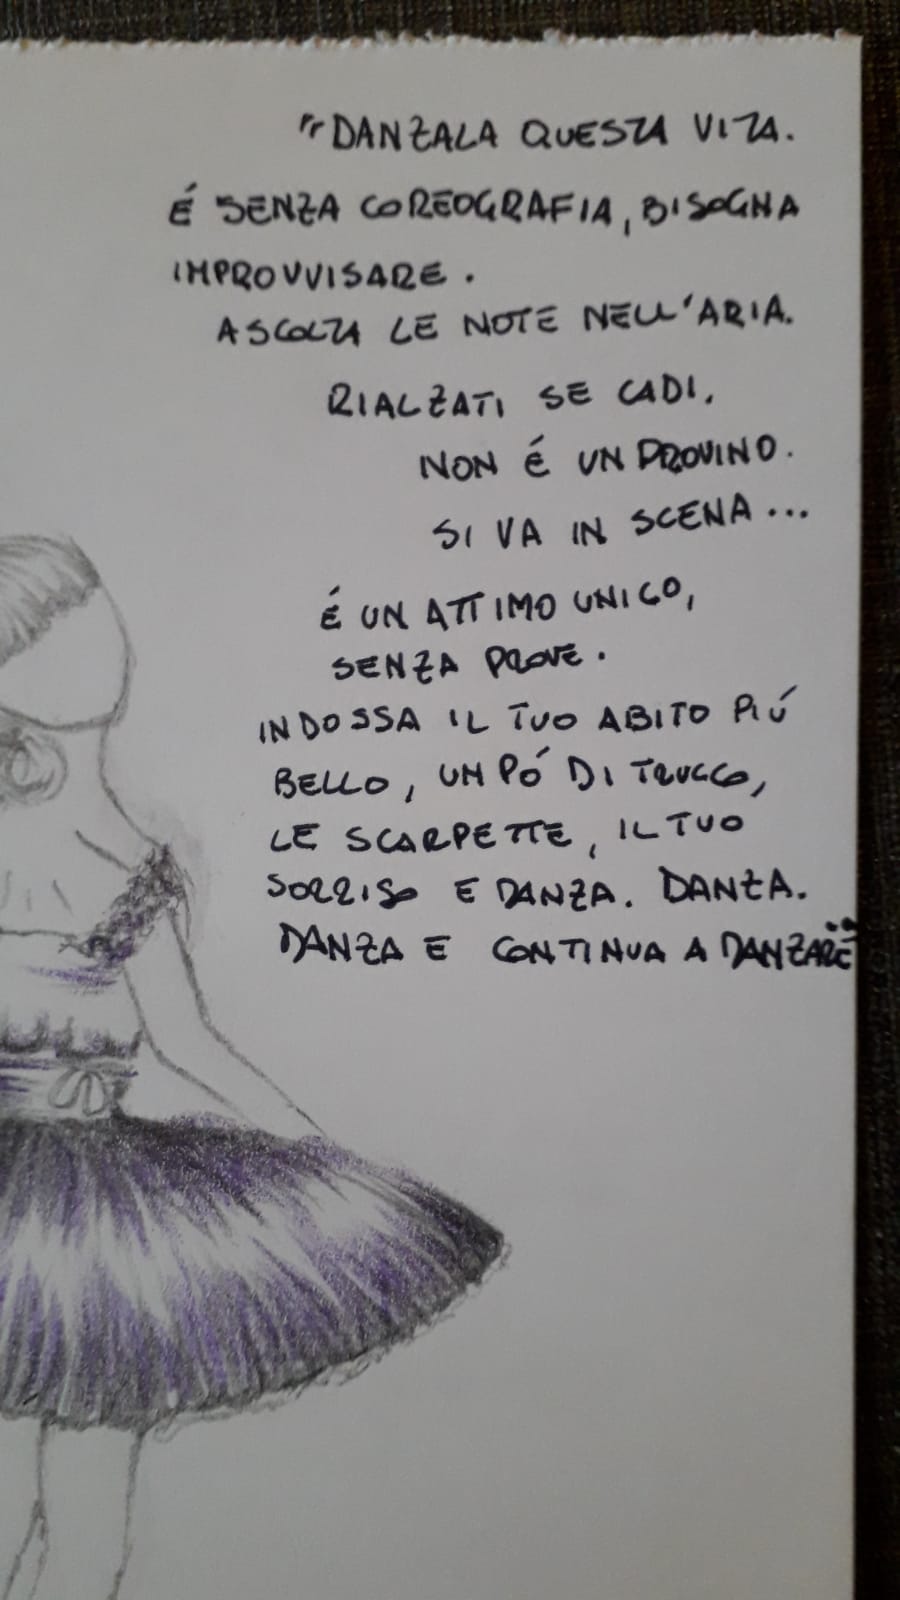 "DANZALA QUESTA VITA.
É SENZA COREOGRAFIA, BISOGNA
IMPROVVISARE.
ASCOLTA LE NOTE NELL'ARIA.
RIALZATI SE CADI,
NON É UN PROVINO.
SI VA IN SCENA...
É UN ATTIMO UNICO,
SENZA PROVE.
INDOSSA IL TUO ABITO PIÚ
BELLO, UN PÓ DI TRUCCO,
LE SCARPETTE, IL TUO
SORRISO E DANZA. DANZA.
DANZA E CONTINUA A DANZARE"